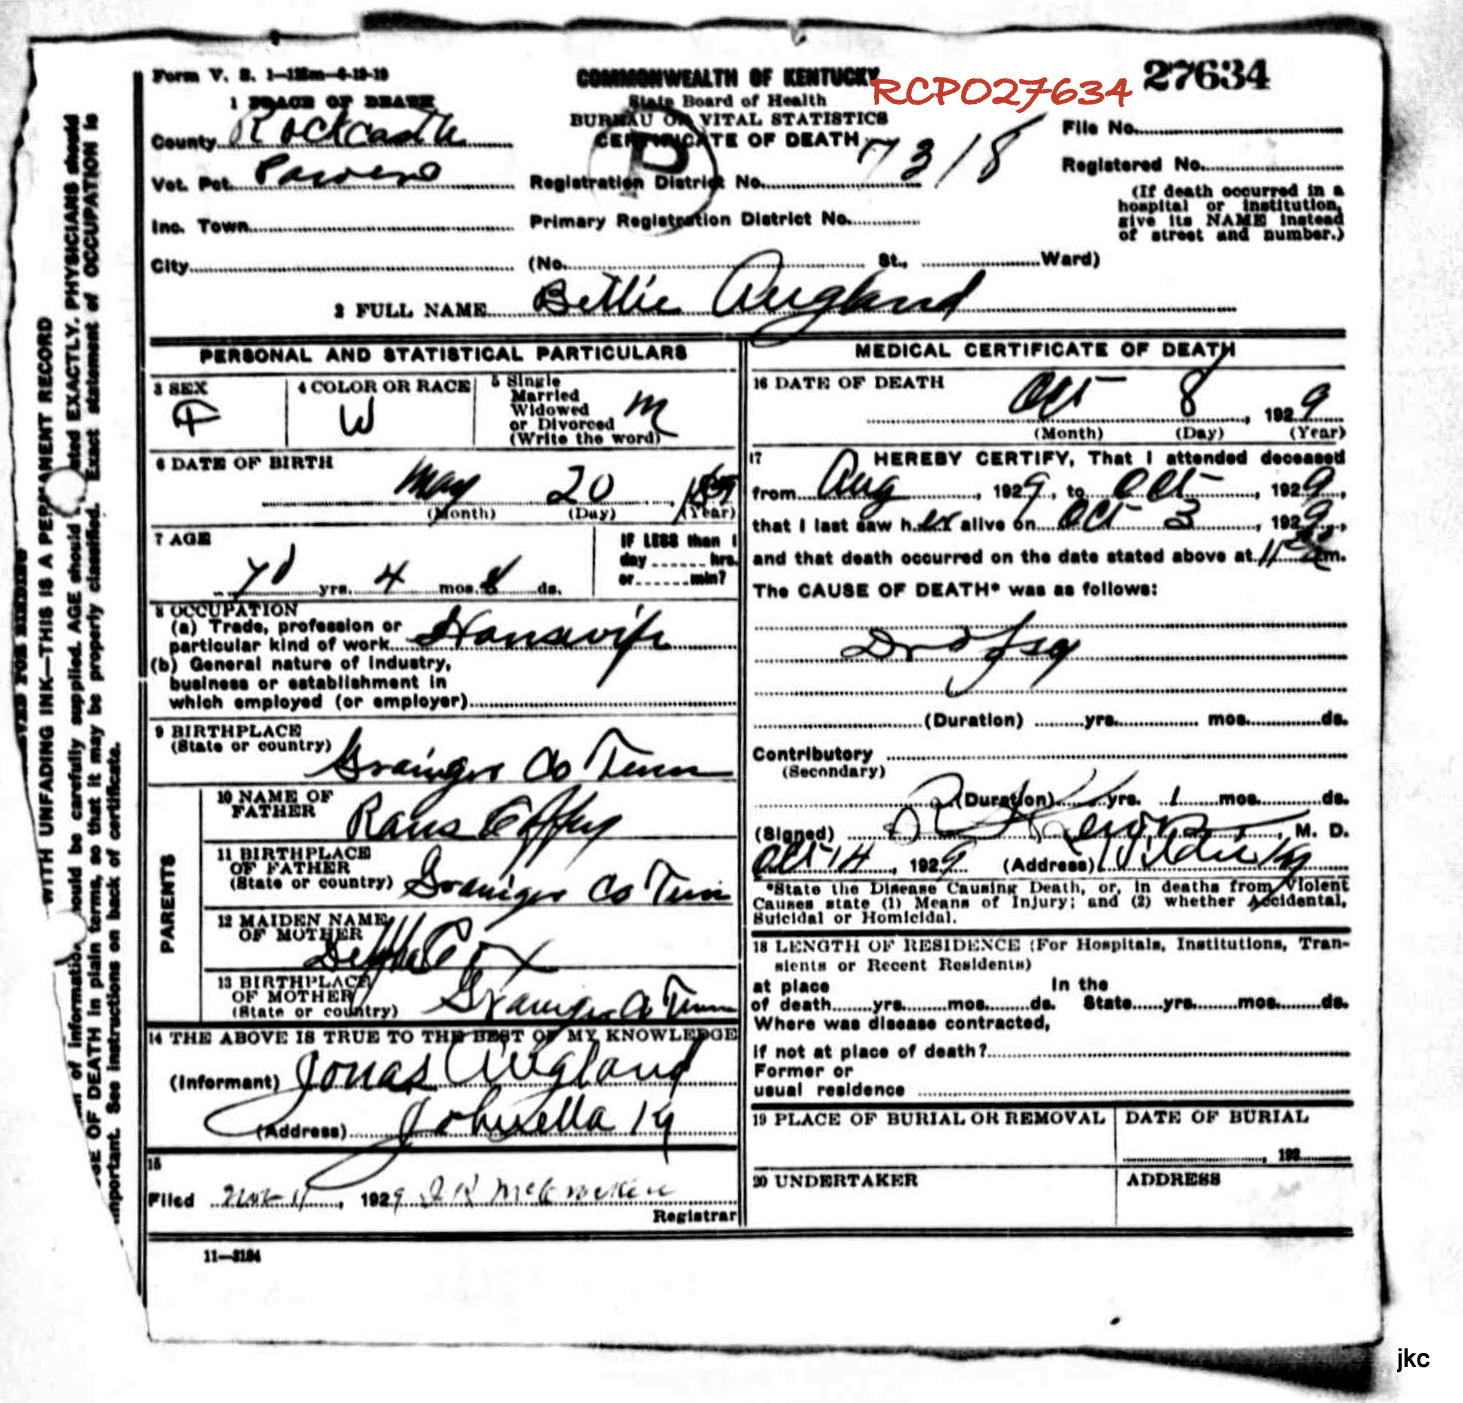 Form V. S. 1-125m-6-19-19
COMMONWEALTH OF KENTUCKY
State Board of Health
BUREAU OF VITAL STATISTICS
CERTIFICATE OF DEATH
RCPO27634
27634
1 PLACE OF DEATH
County Rockcastle
Vot. Pct.
Inc. Town
City
Registration District No. 7318
Primary Registration District No.
(No. St., Ward)
File No.
Registered No.
(If death occurred in a
hospital or institution,
give its NAME instead
of street and number.)
2 FULL NAME Bettie Angland
PERSONAL AND STATISTICAL PARTICULARS
3 SEX
F
4 COLOR OR RACE
W
5 Single
Married
Widowed
or Divorced
(Write the word)
M
6 DATE OF BIRTH
May 20
(Month) (Day) (Year)
7 AGE
yrs. 4 mos. ds.
IF LESS than 1
day hrs.
or min?
8 OCCUPATION
(a) Trade, profession or
particular kind of work Housewife
(b) General nature of industry,
business or establishment in
which employed (or employer)
9 BIRTHPLACE
(State or country)
Grainger Co Tenn
PARENTS
10 NAME OF
FATHER
Rans
11 BIRTHPLACE
OF FATHER
(State or country) Grainger Co Tenn
12 MAIDEN NAME
OF MOTHER
13 BIRTHPLACE
OF MOTHER
(State or country) Grainger Co Tenn
14 THE ABOVE IS TRUE TO THE BEST OF MY KNOWLEDGE
(Informant) Jonas Angland
(Address) Johnetta Ky
15
Filed Nov 11, 1929
Registrar
11-3184
MEDICAL CERTIFICATE OF DEATH
16 DATE OF DEATH
Oct 8, 1929
(Month) (Day) (Year)
17 HEREBY CERTIFY, That I attended deceased
from Aug, 1929, to Oct, 1929,
that I last saw her alive on Oct 3, 1929,
and that death occurred on the date stated above at 11 m.
The CAUSE OF DEATH* was as follows:
Dropsy
(Duration) yrs. mos. ds.
Contributory
(Secondary)
(Duration) yrs. 1 mos. ds.
(Signed) M. D.
Oct 14, 1929 (Address) Wildie Ky
*State the Disease Causing Death, or, in deaths from Violent
Causes state (1) Means of Injury; and (2) whether Accidental,
Suicidal or Homicidal.
18 LENGTH OF RESIDENCE (For Hospitals, Institutions, Tran-
sients or Recent Residents)
at place In the
of death yrs. mos. ds. State yrs. mos. ds.
Where was disease contracted,
if not at place of death?
Former or
usual residence
19 PLACE OF BURIAL OR REMOVAL
DATE OF BURIAL
, 192
20 UNDERTAKER
ADDRESS
WITH UNFADING INK—THIS IS A PERMANENT RECORD
of information should be carefully supplied. AGE should stated EXACTLY. PHYSICIANS should
OF DEATH in plain terms, so that it may be properly classified. Exact statement of OCCUPATION is
important. See instructions on back of certificate.
jkc